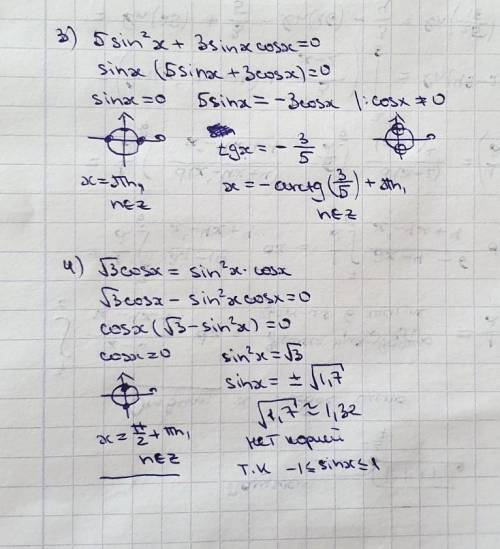 3) 5sin²x + 3sinxcosx=0
sinx (5sinx+3cosx)=0
sinx=0 5sinx=-3cosx |:cosx≠0
tgx = -3/5
x=πn, x=-arctg(3/5)+πn,
n∈Z n∈Z
4) √3cosx = sin²x·cosx
√3cosx - sin²xcosx=0
cosx(√3-sin²x)=0
cosx=0 sin²x=√3
sinx= ±√1,7
√1,7 ≈ 1,32
x=π/2+πn, нет корней
n∈Z т.к -1≤sinx≤1